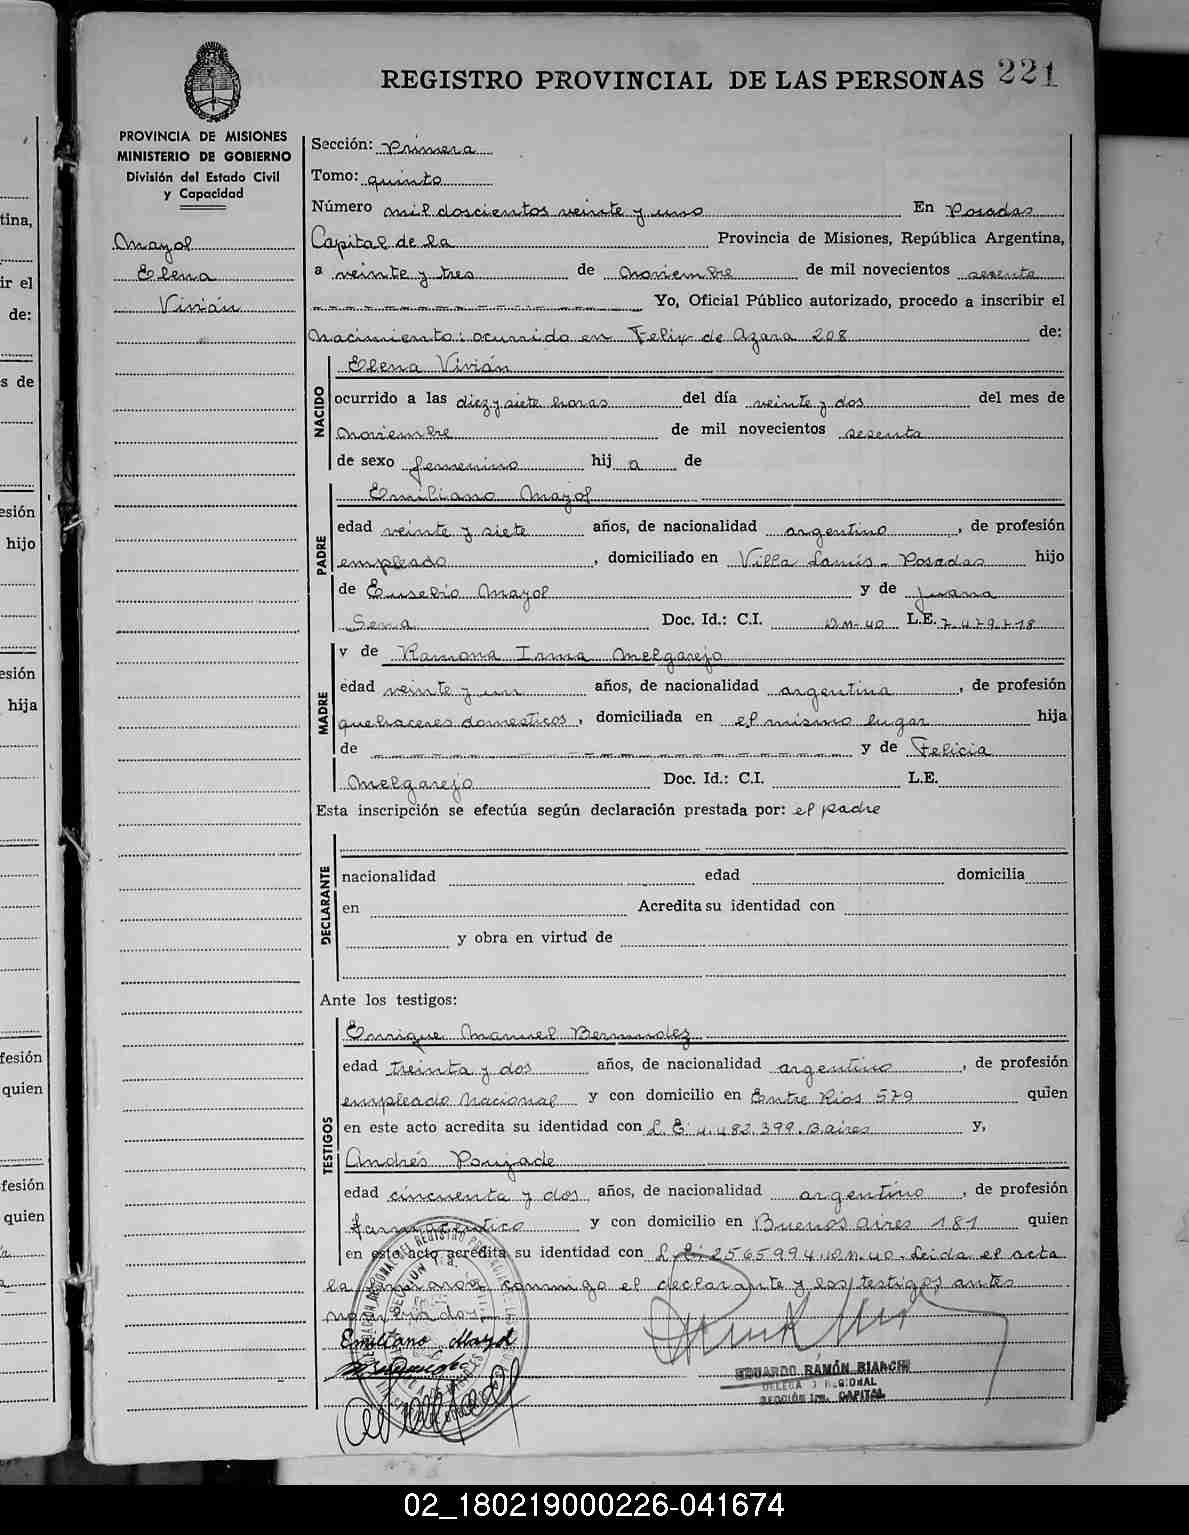 REGISTRO PROVINCIAL DE LAS PERSONAS 221
PROVINCIA DE MISIONES
MINISTERIO DE GOBIERNO
División del Estado Civil
y Capacidad
Mayol
Elena
Vivián
Sección: Primera
Tomo: quinto
Número mil doscientos veinte y uno En Posadas
Capital de la Provincia de Misiones, República Argentina,
a veinte y tres de noviembre de mil novecientos sesenta
Yo, Oficial Público autorizado, procedo a inscribir el
Nacimiento: ocurrido en Felix de Azara 208 de:
NACIDO
Elena Vivián
ocurrido a las diez y siete horas del día veinte y dos del mes de
noviembre de mil novecientos sesenta
de sexo femenino hij a de
PADRE
Emiliano Mayol
edad veinte y siete años, de nacionalidad argentino, de profesión
empleado, domiciliado en Villa Lanús - Posadas hijo
de Eusebio Mayol y de Juana
Sena Doc. Id.: C.I. D.M. 40 L.E. 7.479.718
MADRE
y de Ramona Irma Melgarejo
edad veinte y un años, de nacionalidad argentina, de profesión
quehaceres domesticos, domiciliada en el mismo lugar hija
de y de Felicia
Melgarejo Doc. Id.: C.I. L.E.
Esta inscripción se efectúa según declaración prestada por: el padre
DECLARANTE
nacionalidad edad domicilia
en Acredita su identidad con
y obra en virtud de
Ante los testigos:
TESTIGOS
Enrique Manuel Bermudez
edad treinta y dos años, de nacionalidad argentino, de profesión
empleado Nacional y con domicilio en Entre Rios 579 quien
en este acto acredita su identidad con L.E. 4.482.399. B. aires y,
Andrés Pouzade
edad cincuenta y dos, años, de nacionalidad argentino, de profesión
farmaceutico y con domicilio en Buenos Aires 181 quien
en este acto acredita su identidad con L.E. 2565994. D.M. 40. Leida el acta
la firmaron conmigo el declarante y los testigos antes
nombrados
Emiliano Mayol
EDUARDO RAMÓN BIANCHI
DELEGADO REGIONAL
SECCIÓN 1ra. CAPITAL
02_180219000226-041674